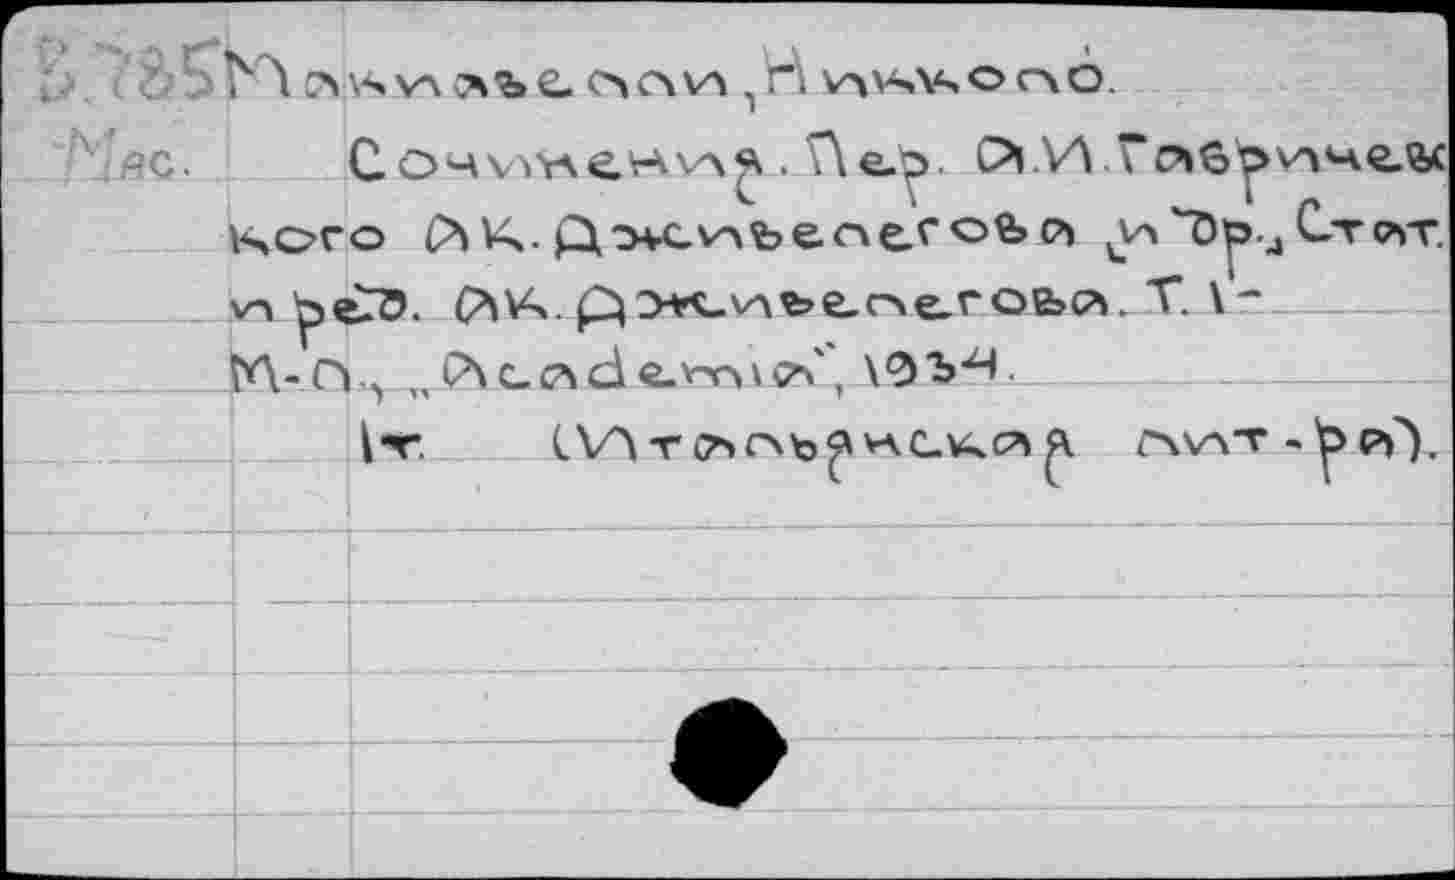 Б.785 Макиавелли, Никколо.
Мас. Сочинения. Пер. А.И.Габричевс
кого А.К.Дживелегова [и др.] Стат.
и ред. А.К.Дживелегова. Т. 1-
М-Л., „Academia", 1934.
1т. (Итальянская лит-ра).